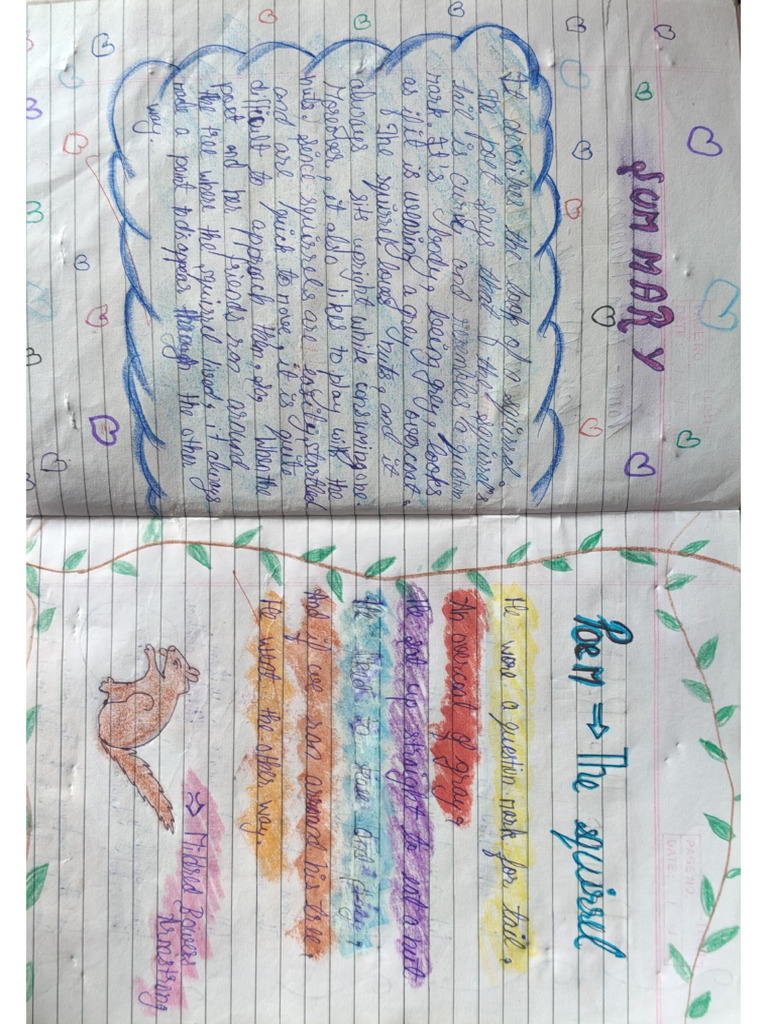 SUMMARY
It describes the look of a squirrel.
The poet says that the squirrel's
tail is curvy and resembles a question
mark. It's body, being grey, looks
as if it is wearing a grey overcoat.
The squirrel loves nuts, and it
always sits upright while consuming one.
Moreover, it also likes to play with the
nuts. Since squirrels are easily startled
and are quick to move, it is quite
difficult to approach them. When the
poet and her friends ran around
the tree where the squirrel lived, it always
made a point to disappear through the other
way.
Poem ⇒ The squirrel
He wore a question mark for tail,
An overcoat of gray,
He sat up straight to eat a nut
He liked to tease and play,
And if we ran around his tree,
He went the other way.
⇒ Mildred Bowers
Armstrong
PAGE NO
DATE